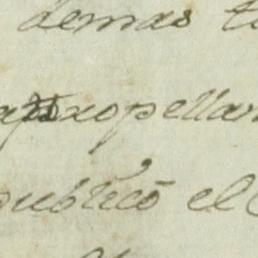 demas t
atropellar
publicó el